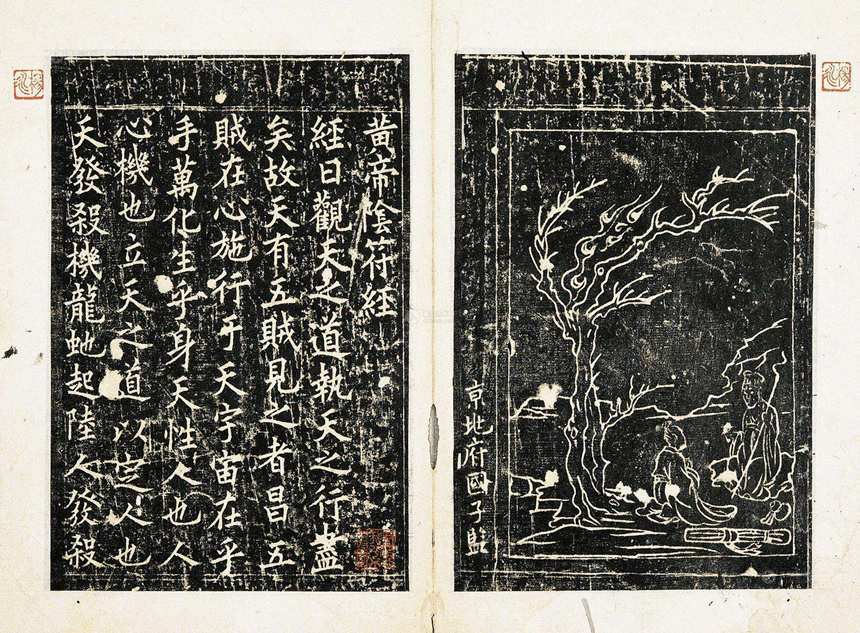 京兆府國子監
黃帝陰符經
經曰觀天之道執天之行盡
矣故天有五賊見之者昌五
賊在心施行于天宇宙在乎
手萬化生乎身天性人也人
心機也立天之道以定人也
天發殺機龍虵起陸人發殺